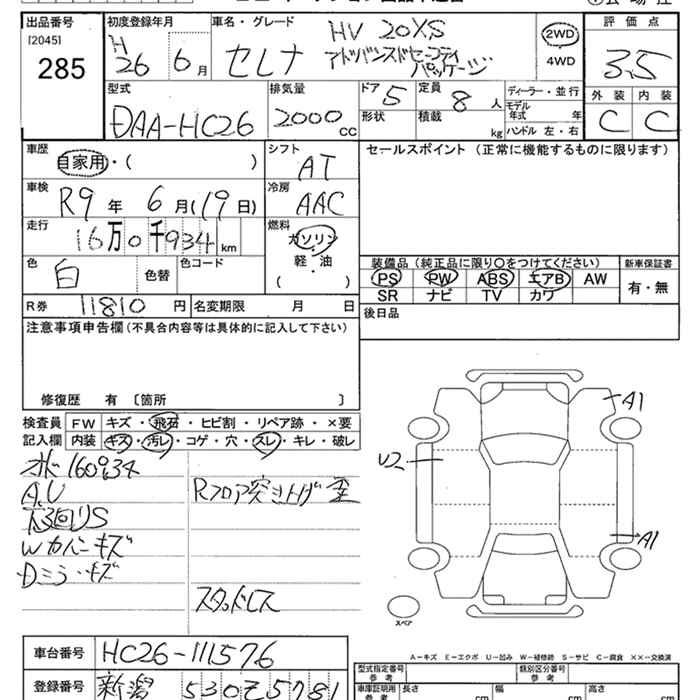 出品番号
[2045]
285
初度登録年月
H
26 6月
車名・グレード
HV 20XS
セレナ アドバンスドセーフティ
パッケージ
2WD
4WD
評価点
3.5
外装 内装
C C
型式
DAA-HC26
排気量
2000 cc
ドア 5
形状
定員 8 人
積載 kg
ディーラー・並行
モデル
年式 年
ハンドル 左・右
車歴
自家用・( )
シフト
AT
セールスポイント (正常に機能するものに限ります)
車検
R9 年 6 月(19日)
冷房
AAC
走行
16万0千934 km
燃料
ガソリン
軽・油
( )
色
白
色替
色コード
装備品(純正品に限り○をつけてください)
PS PW ABS エアB AW
SR ナビ TV カワ
新車保証書
有・無
R券 11810 円
名変期限 月 日
後日品
注意事項申告欄(不具合内容等は具体的に記入して下さい)
修復歴 有 〔箇所 〕
検査員
記入欄
FW キズ・飛石・ヒビ割・リペア跡・×要
内装 キズ・汚レ・コゲ・穴・スレ・キレ・破レ
オド160934
A.U
下回リS
Wカバーキズ
Dミラーキズ
Rフロア突き上げ歪
スタッドレス
A1
U2
A1
スペア
車台番号 HC26-111576
登録番号 新潟 530Z5781
A-キズ E-エクボ U-凹み W-補修跡 S-サビ C-腐食 XX-交換済
型式指定番号
参考
類別区分番号
参考
車庫証明用
参考
長さ cm
幅 cm
高さ cm